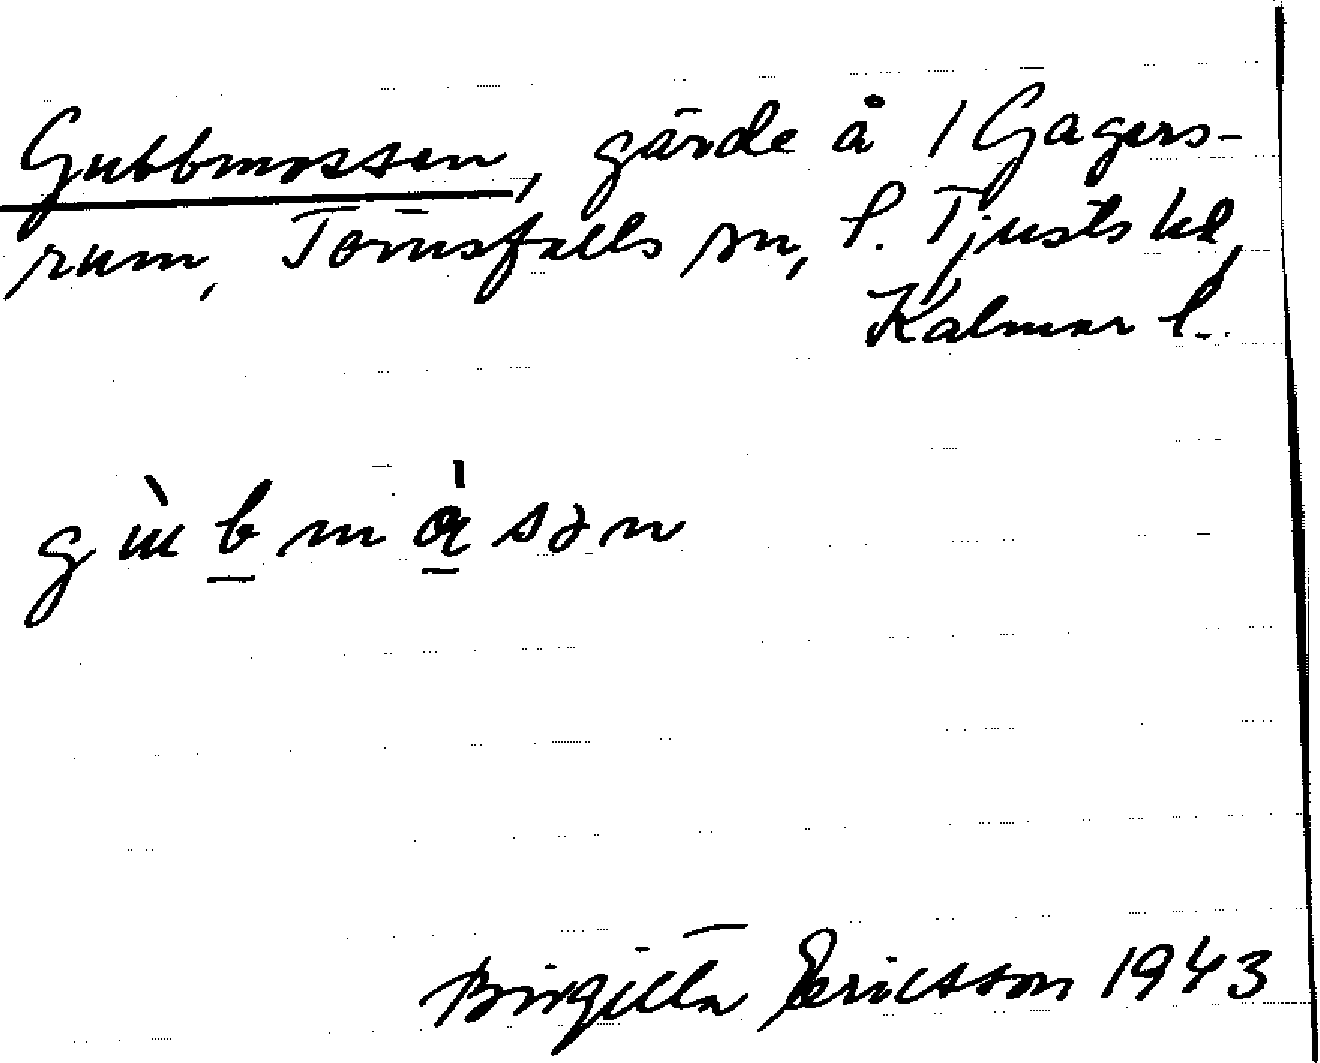 Gubbmossen, gärde å 1 Gagers-
rum, Törnsfalls sn, S. Tjusts hd,
Kalmar l.
gùbmå̀sən
Birgitta Ericsson 1943